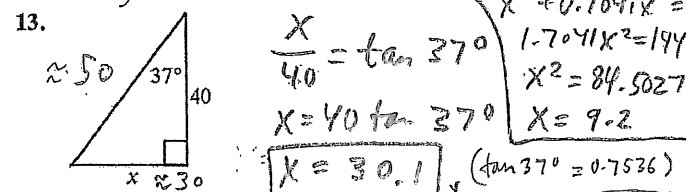 13.
≈50
37°
40
x ≈30
x/40 = tan 37°
x = 40 tan 37°
x = 30.1
(tan 37° = 0.7536)
1.7041x²=144
x² = 84.5027
x = 9.2